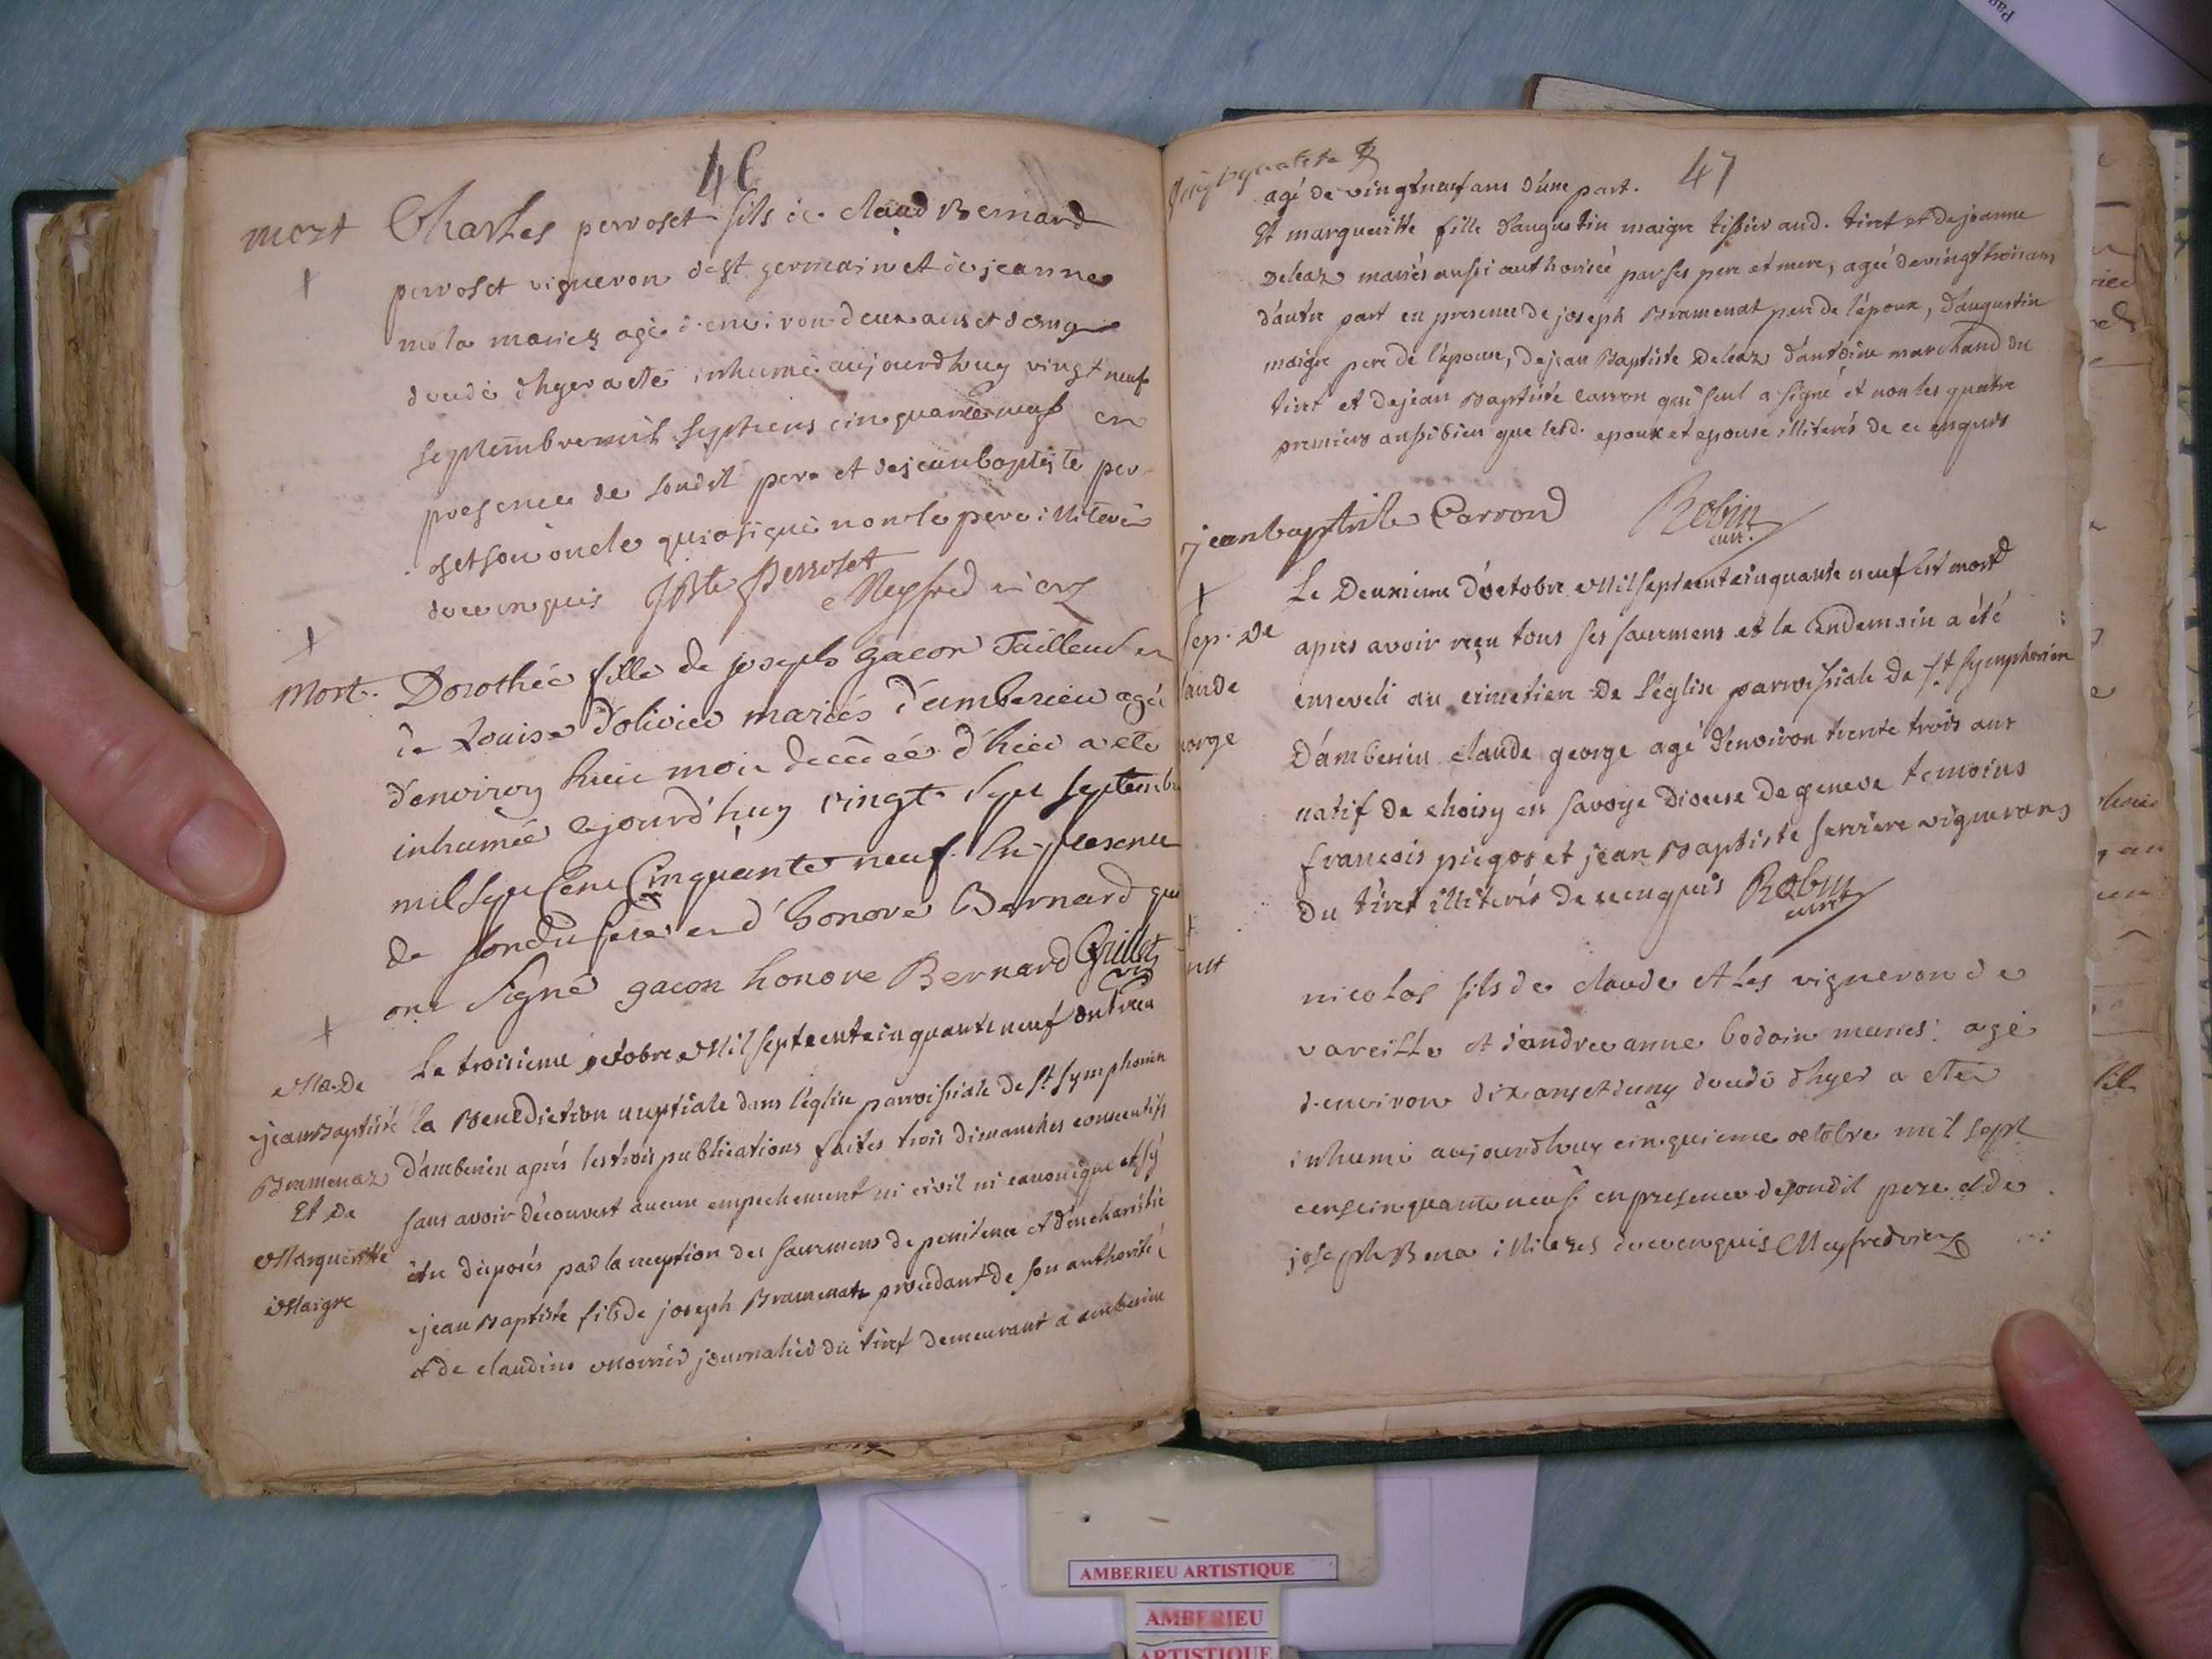 46
mort Charles perroset fils de claud Bernard
perroset vigneron de st germain et de jeanne
mola mariez agé d'environ deux ans et demy
decedé d'hyer a eté inhumé aujourdhuy vingt neuf
septembre mil septcens cinquante neuf en
presence de sondit pere et de jean baptiste per
oset son oncle qui a signé non le pere illiteré
de ce enquis JBte Perroset Meyfred vic
Mort. Dorothée fille de joseph gacon Tailleur et
de Louise d'olivier mariés d'amberieu agée
d'environ huit mois decedée d'hier a été
inhumée ajourd'huy vingt sept septembre
mil sept Cent Cinquante neuf. En presence
de sondit pere et d'honoré Bernard qui
ont signé gacon honore Bernard Grillet
vic
Le troisieme octobre Mil sept cent cinquante neuf ont reçu
Ma. De
jean Baptiste
Bramenaz
Et De
Margueritte
Maigre
la Benediction nuptiale dans l'eglise parroissiale de st. symphorien
d'amberieu aprés les trois publications faites trois dimanches consecutifs
sans avoir découvert aucun empechement ni civil ni canonique et s'y
être disposés par la reception des sacremens de penitence et d'eucharistie
jean Baptiste fils de joseph Bramenat procedant de son authorité
et de claudine journalier du tiret demeurant a amberieu
47
agé de vingt neuf ans d'une part.
Et margueritte fille d'augustin maigre tissier aud. tiret et de jeanne
Deleaz mariés aussi authorisée par ses pere et mere, agée de vingt trois ans
d'autre part en presence de joseph Bramenat pere de l'époux, d'augustin
maigre pere de l'epouse, de jean Baptiste Deleaz d'antoine marchand du
tiret et de jean Baptiste carron qui seul a signé et non les quatre
premiers aussi bien que lesd. epoux et epouse illiterés de ce enquis
jean baptiste Carron Robin
curé
Sep. De
laude
eorge
Le Deuxieme d'octobre Mil sept cent cinquante neuf est mort
apres avoir reçu tous ses sacremens et le lendemain a été
enseveli au cimetiere De l'église parroissiale de st. symphorien
D'amberieu claude george agé d'environ trente trois ans
natif de choisy en savoye diocese de geneve temoins
francois et jean Baptiste vignerons
Du tiret illiterés de ce enquis Robin
curé
nicolas fils de claude vigneron de
vareille et d'andreanne bodoin maries: agé
d'environ dix ans et demy decedé d'hyer a eté
inhumé aujourdhuy cinquieme octobre mil sept
cens cinquante neuf en presence de sondit pere et de
joseph Bena illiterés de ce enquis Meyfred vic
AMBERIEU ARTISTIQUE
AMBERIEU
ARTISTIQUE